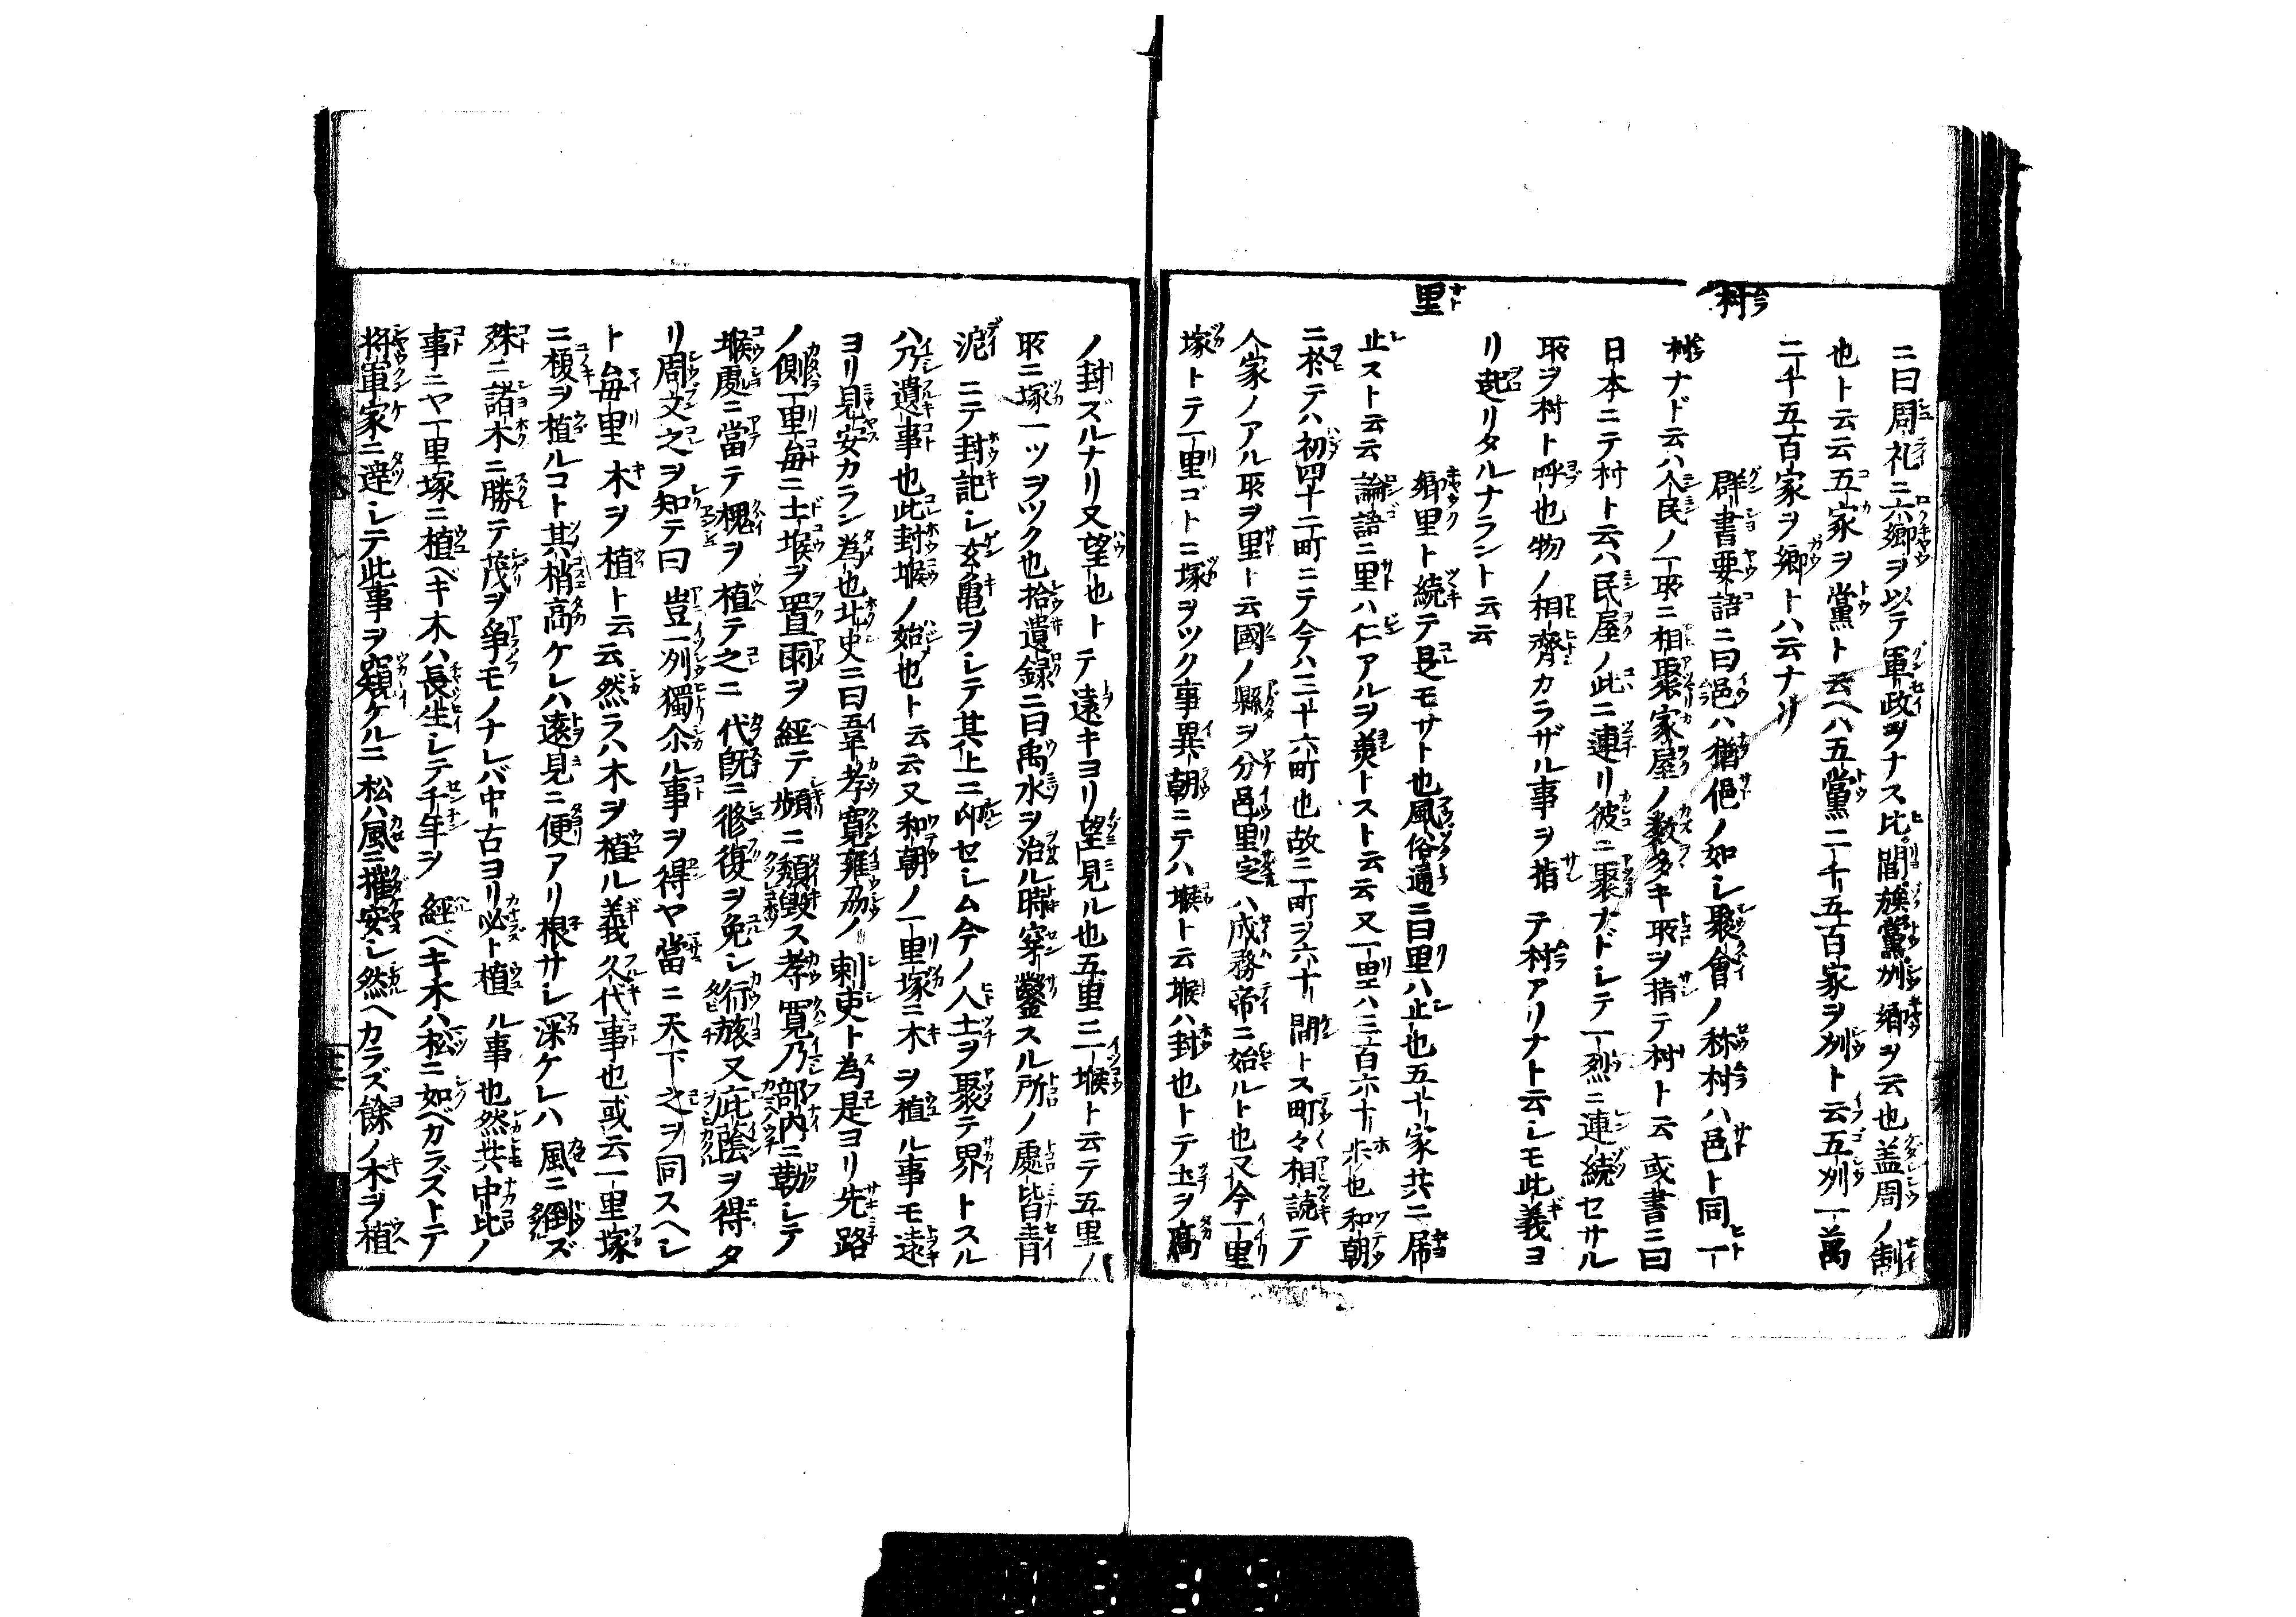 ニ曰周礼ニ六郷ヲ以テ軍政ヲナス比閭族黨州郷ヲ云也盖周ノ制
也ト云云五家ヲ黨ト云ヘハ五黨二千五百家ヲ州ト云五州一萬
二千五百家ヲ郷トハ云ナリ
村
群書要語ニ曰邑ハ猶俋ノ如シ聚會ノ称村ハ邑ト同一
村ナド云ハ人民ノ一所ニ相聚家屋ノ数多キ所ヲ指テ村ト云或書ニ曰
日本ニテ村ト云ハ民屋ノ此ニ連リ彼ニ聚ナドシテ一烈ニ連続セサル
所ヲ村ト呼也物ノ相齊カラザル事ヲ指テ村アリナト云シモ此義ヨ
リ起リタルナラント云云
里
郷里ト続テ是モサト也風俗通ニ曰里ハ止也五十家共ニ居
止スト云云論語ニ里ハ仁アルヲ美トスト云云又一里ハ三百六十歩也和朝
ニ於テハ初四十二町ニテ今ハ三十六町也故ニ一町ヲ六十間トス町々相続テ
人家ノアル所ヲ里ト云國ノ縣ヲ分邑里定ハ成務帝ニ始ルト也又今一里
塚トテ一里ゴトニ塚ヲツク事異朝ニテハ堠ト云堠ハ封也トテ土ヲ高
ノ封ズルナリ又望也トテ遠キヨリ望見ル也五里ニ一堠ト云テ五里ノ
所ニ塚一ツヲツク也拾遺録ニ曰禹水ヲ治ル時穿鑿スル所ノ處皆青
泥ニテ封記シ玄亀ヲシテ其上ニ印セシム今ノ人土ヲ聚テ界トスル
ハ乃遺事也此封堠ノ始也ト云云又和朝ノ一里塚ニ木ヲ植ル事モ遠
ヨリ見安カラン為也北史ニ曰韋孝寛雍州ノ刺吏ト為是ヨリ先路
ノ側一里毎ニ土堠ヲ置雨ヲ經テ頻ニ頽毀ス孝寛乃部内ニ勒シテ
堠處ニ當テ槐ヲ植テ之ニ代既ニ修復ヲ免シ行旅又庇蔭ヲ得タ
リ周文之ヲ知テ曰豈一列獨尒ル事ヲ得ヤ當ニ天下之ヲ同スヘシ
トム毎里木ヲ植ト云云然ラハ木ヲ植ル義久代事也或云一里塚
ニ榎ヲ植ルコト其梢高ケレハ遠見ニ便アリ根サシ深ケレハ風ニ倒ズ
殊ニ諸木ニ勝テ茂ヲ争モノナレバ中古ヨリ必ト植ル事也然共中比ノ
事ニヤ一里塚ニ植ベキ木ハ長生シテ千年ヲ經ベキ木ハ松ニ如ベカラズトテ
将軍家ニ達シテ此事ヲ窺ケルニ松ハ風ニ摧安シ然ヘカラズ餘ノ木ヲ植